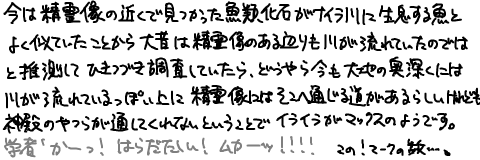 今は精霊像の近くで見つかった魚類化石がナイラ川に生息する魚と
よく似ていたことから大昔は精霊像のある辺りも川が流れていたのでは
と推測してひきつづき調査していたら、どうやら今も大地の奥深くには
川が流れているっぽい上に精霊像にはそこへ通じる道があるらしいけれども
神殿のやつらが通してくれないということでイライラがマックスのようです。
学者「かーっ！はらだたしい！ムカーッ！！！！ この！マークの数…。